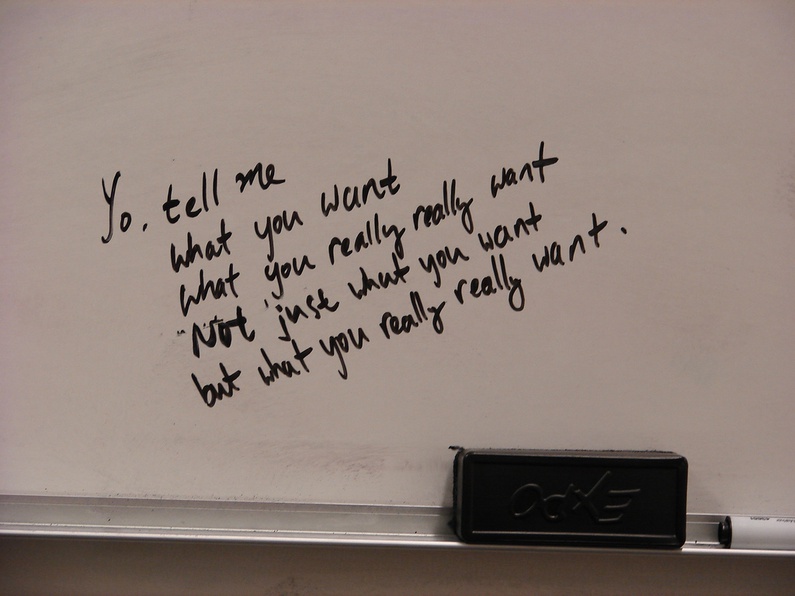 Yo, tell me
what you want
what you really really want
Not just what you want
but what you really really want.
EXPO